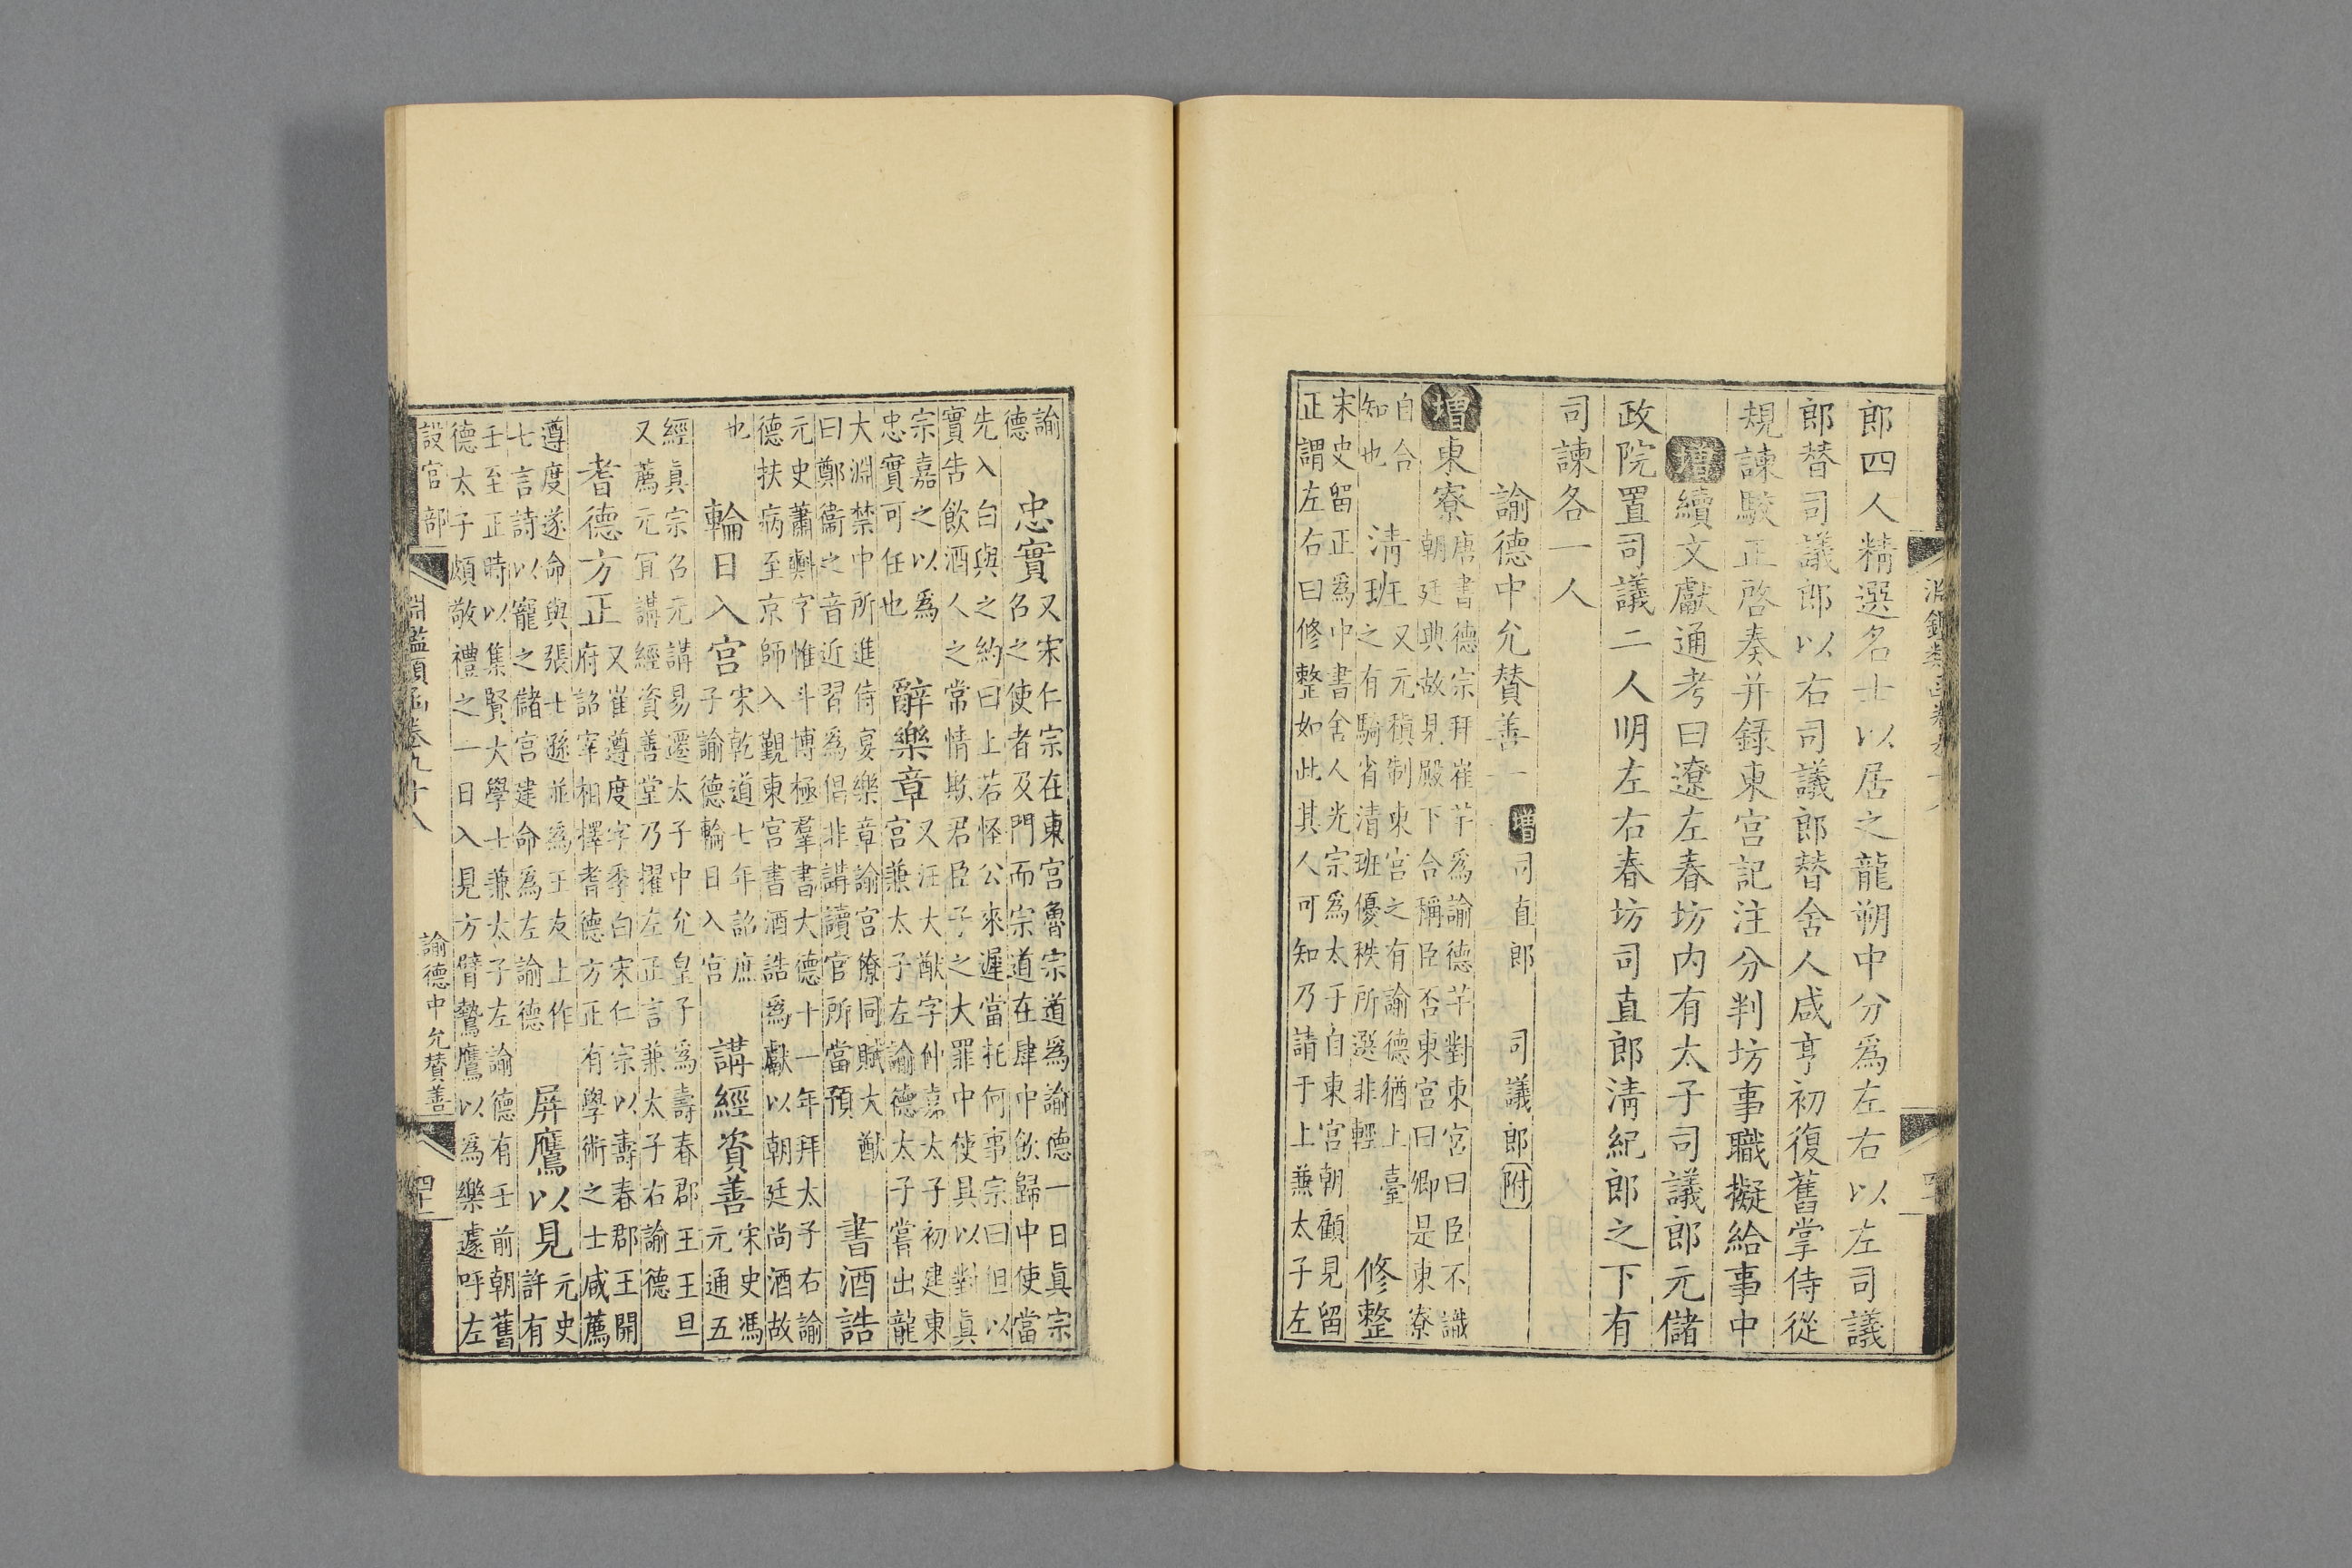 淵鑑類函卷九十八
郎四人精選名士以居之龍朔中分爲左右以左司議
郎替司議郎以右司議郎替舍人咸亨初復舊掌侍從
規諫駁正啓奏并録東宮記注分判坊事職擬給事中
增續文獻通考曰遼左春坊內有太子司議郎元儲
政院置司議二人明左右春坊司直郎淸紀郎之下有
司諫各一人
諭德中允贊善一 增司直郎 司議郎附
增東寮 唐書德宗拜崔芊爲諭德芊對東宮曰臣不識
朝廷典故見殿下合稱臣否東宮曰卿是東寮
自合
知也 清班 又元稹制東宮之有諭德猶上臺
之有騎省清班優秩所選非輕 修整
宋史留正爲中書舍人光宗爲太子自東宮朝顧見留
正謂左右曰修整如此其人可知乃請于上兼太子左
諭
德 忠實 又宋仁宗在東宮魯宗道爲諭德一日眞宗
召之使者及門而宗道在肆中飲歸中使當
先入白與之約曰上若怪公來遲當托何事宗曰但以
實告飲酒人之常情欺君臣子之大罪中使具以對眞
宗嘉之以爲
忠實可任也 辭樂章 又汪大猷字仲嘉太子初建東
宮兼太子左諭德太子嘗出龍
大淵禁中所進侍宴樂章諭宮僚同賦大猷
曰鄭衞之音近習爲倡非講讀官所當預 書酒誥
元史蕭㪺字惟斗博極羣書大德十一年拜太子右諭
德扶病至京師入覲東宮書酒誥爲獻以朝廷尚酒故
也 輪日入宮 宋乾道七年詔庶
子諭德輪日入宮 講經資善 宋史馮
元通五
經眞宗召元講易遷太子中允皇子爲壽春郡王王旦
又薦元宜講經資善堂乃擢左正言兼太子右諭德
耆德方正 又崔遵度字季白宋仁宗以壽春郡王開
府詔宰相擇耆德方正有學術之士咸薦
遵度遂命與張士遜並爲王友上作
七言詩以寵之儲宮建命爲左諭德 屏鷹以見 元史
許有
壬至正時以集賢大學士兼太子左諭德有壬前朝舊
德太子頗敬禮之一日入見方臂鷙鷹以爲樂遽呼左
設官部 淵鑑類函卷九十八 諭德中允贊善